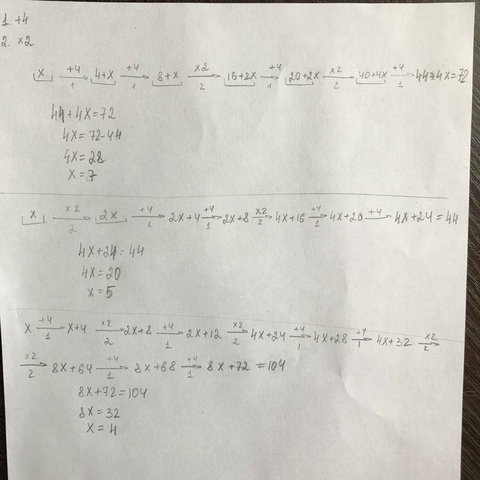 1. +4
2. x2
x +4 1 4+x +4 1 8+x x2 2 16+2x +4 1 20+2x x2 2 40+4x +4 1 44+4x=72
44+4x=72
4x=72-44
4x=28
x=7
x x2 2 2x +4 1 2x+4 +4 1 2x+8 x2 2 4x+16 +4 1 4x+20 +4 4x+24=44
4x+24=44
4x=20
x=5
x +4 1 x+4 x2 2 2x+8 +4 1 2x+12 x2 2 4x+24 +4 1 4x+28 +4 1 4x+32 x2 2
x2 2 8x+64 +4 1 8x+68 +4 1 8x+72=104
8x+72=104
8x=32
x=4